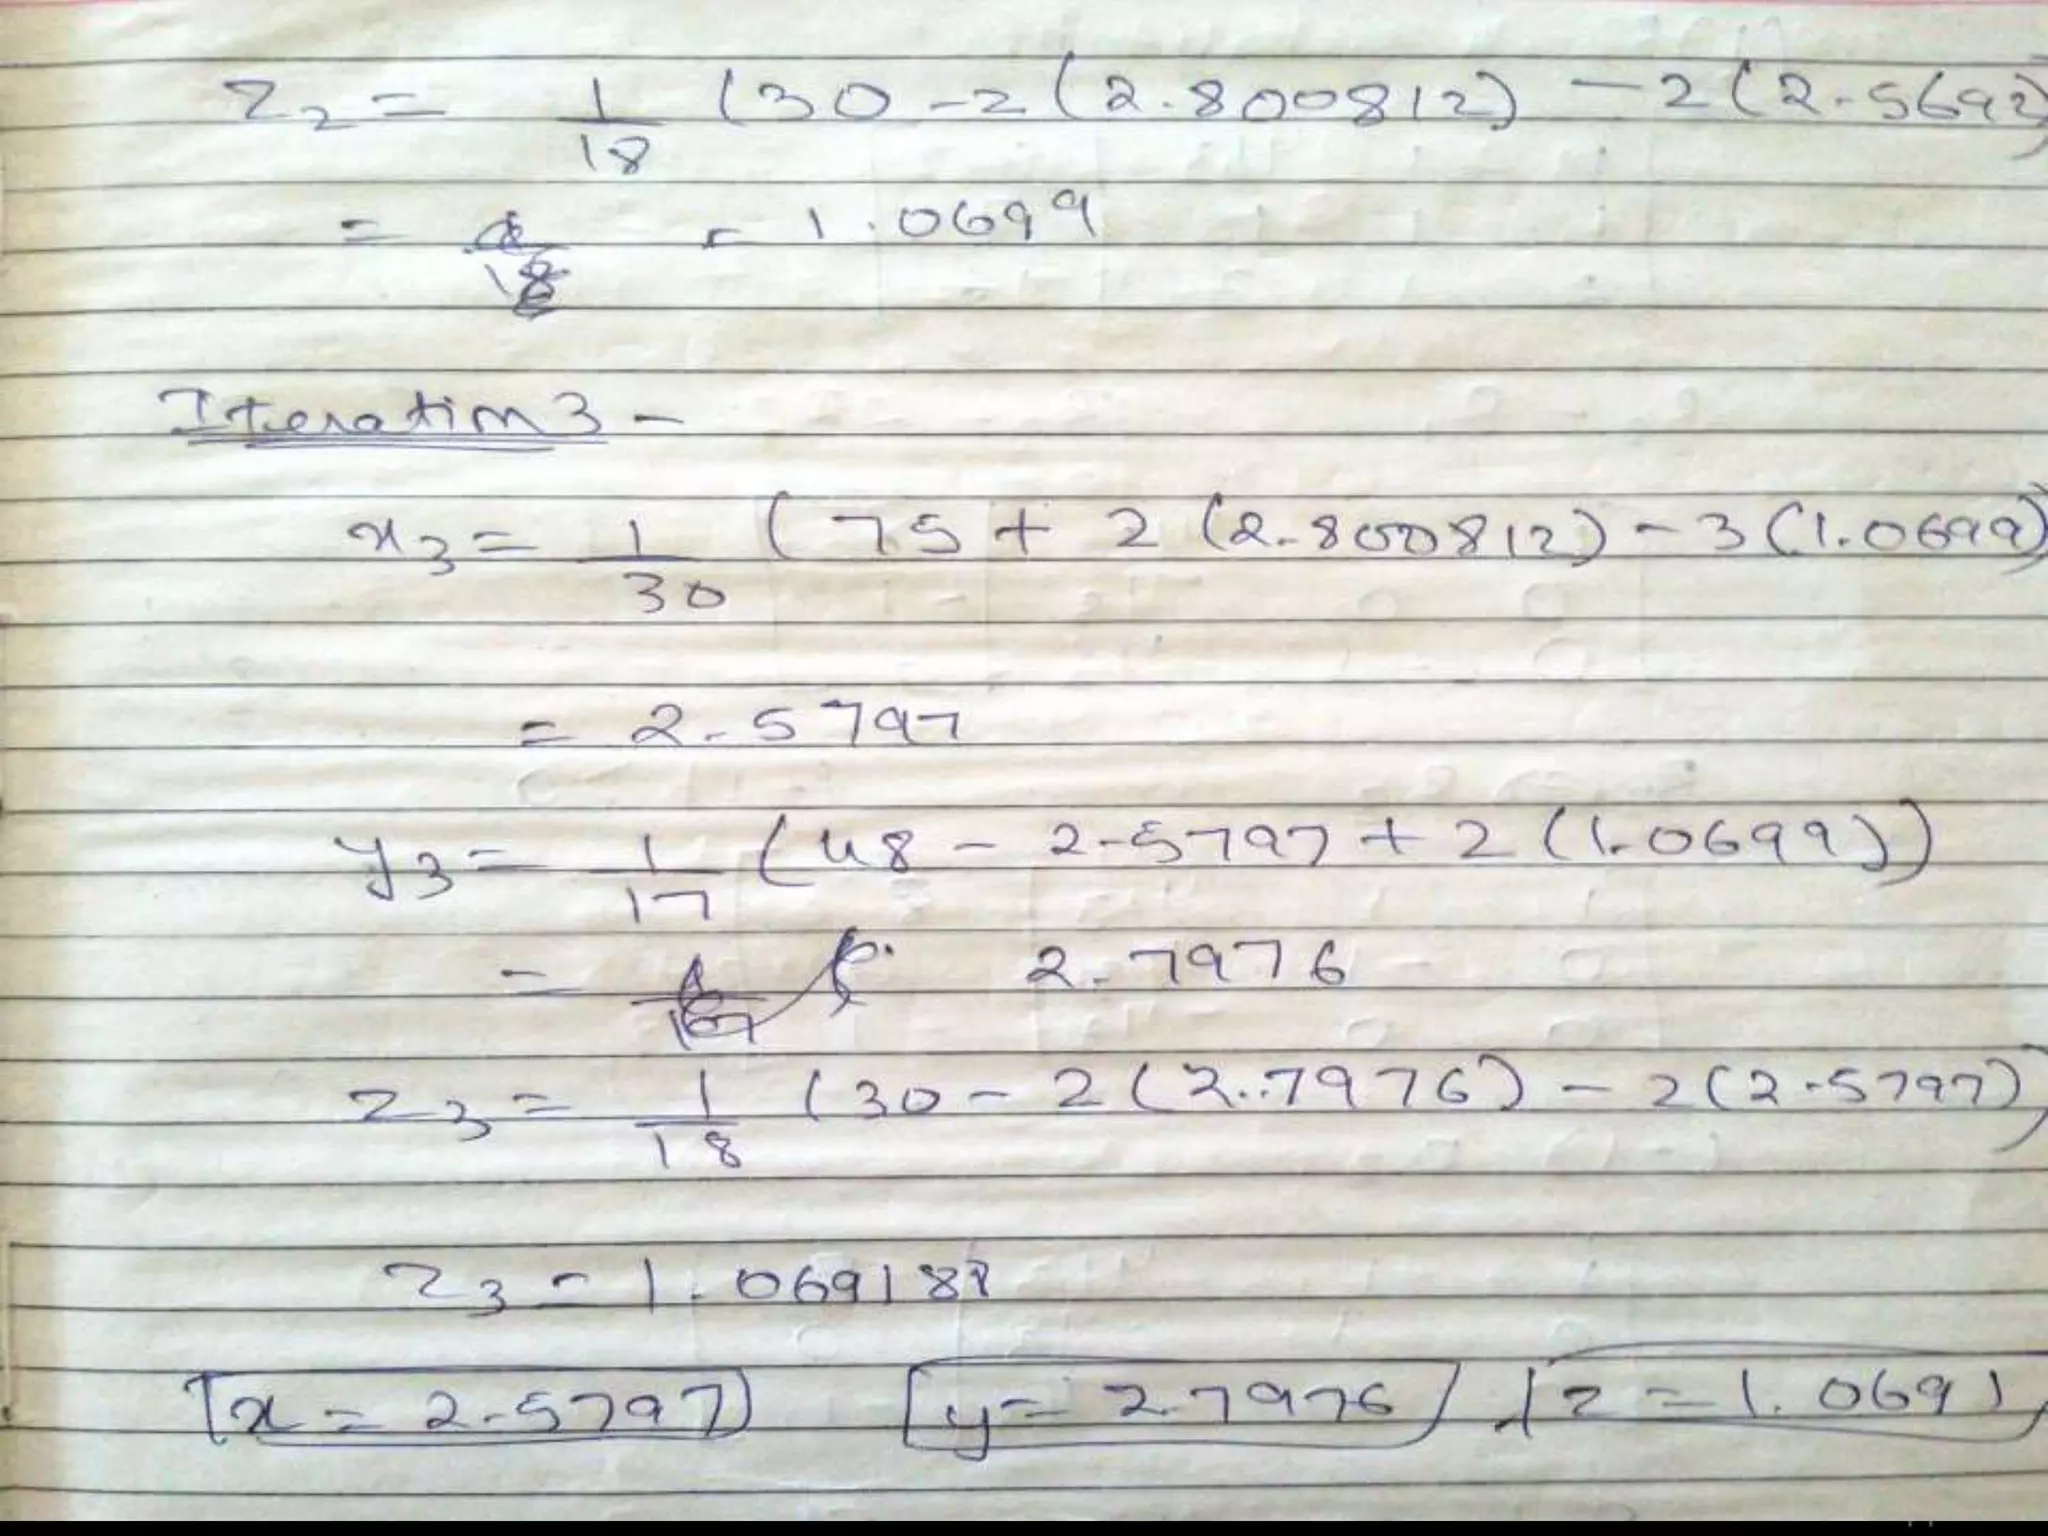 z₂ = 1/18 (30 - 2(2.800812) - 2(2.5692)
= = 1.0699
Iteration 3 -
x₃ = 1/30 (75 + 2(2.800812) - 3(1.0699)
= 2.5797
y₃ = 1/17 (48 - 2.5797 + 2(1.0699))
= 2.7976
z₃ = 1/18 (30 - 2(2.7976) - 2(2.5797)
z₃ = 1.069188
x = 2.5797 y = 2.7976 z = 1.0691